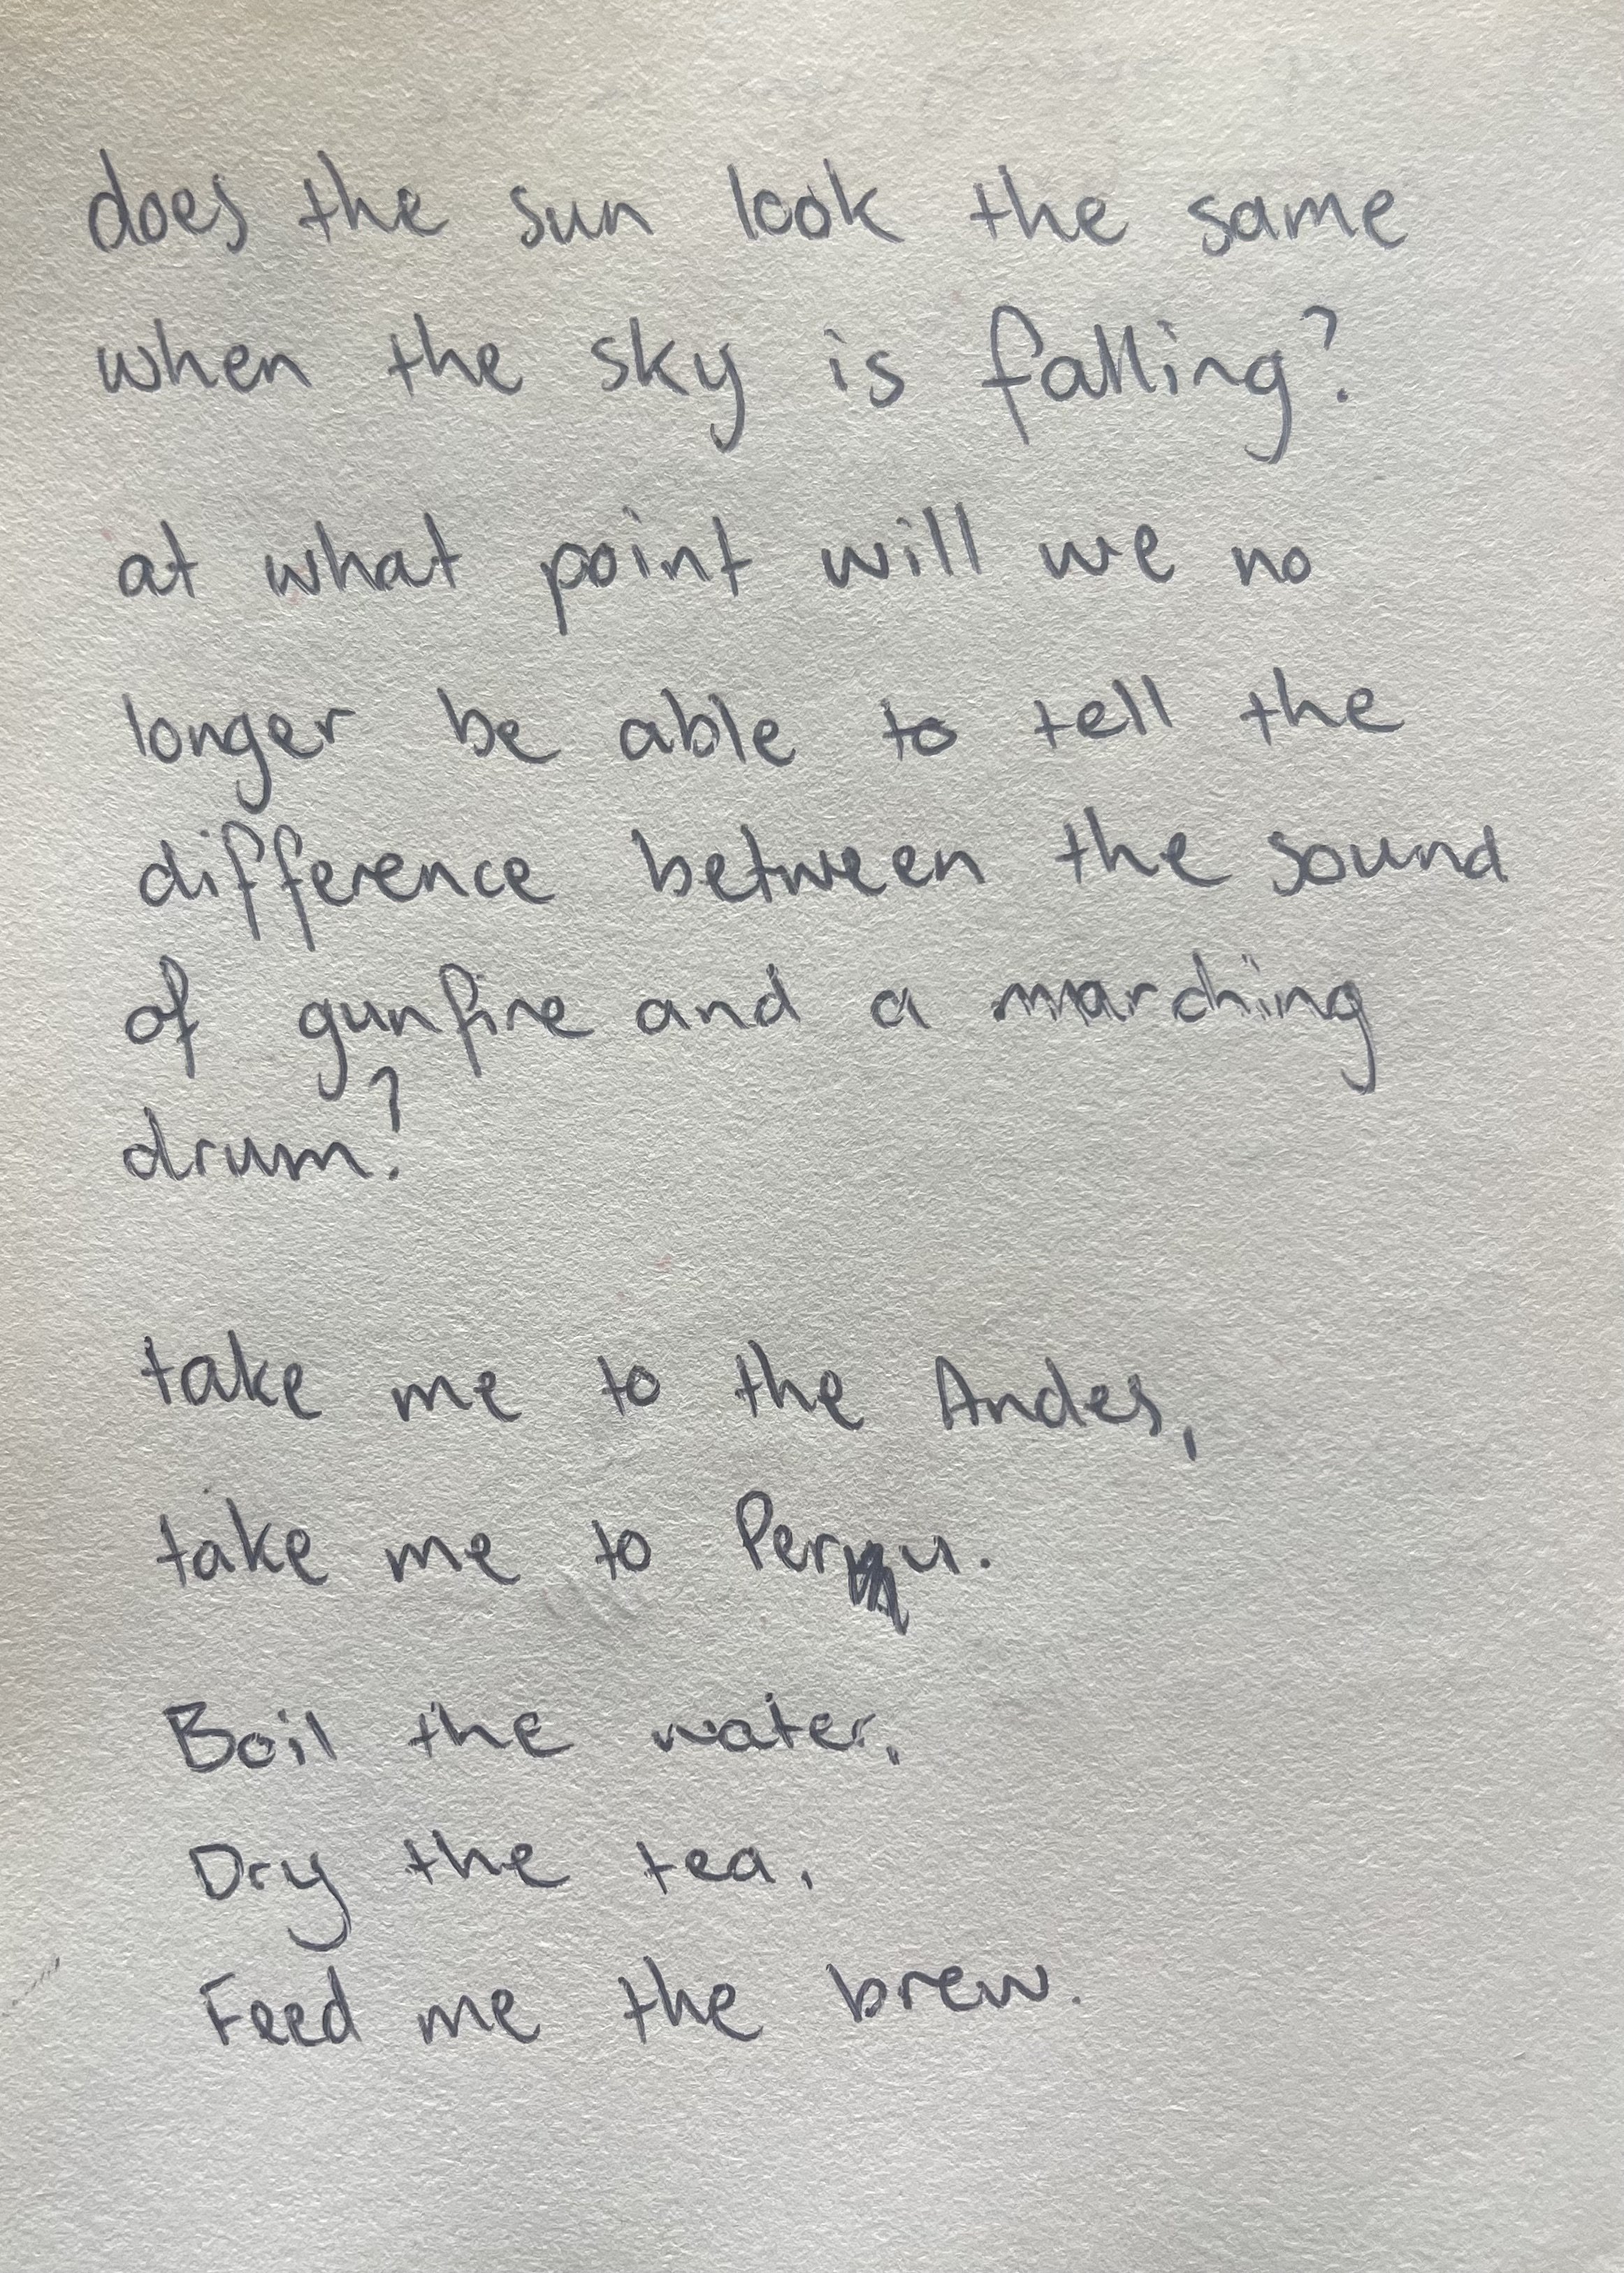 does the sun look the same
when the sky is falling?
at what point will we no
longer be able to tell the
difference between the sound
of gunfire and a marching
drum?
take me to the Andes,
take me to Peru.
Boil the water.
Dry the tea.
Feed me the brew.